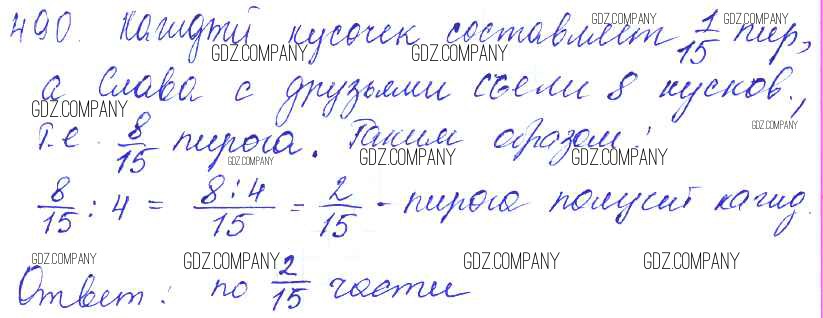 490. Каждый кусочек составляет 1/15 пир,
а Слава с друзьями съели 8 кусков.,
т.е. 8/15 пирога. Таким образом:
8/15 : 4 = 8:4/15 = 2/15 - пирога получит кажд.
Ответ: по 2/15 части
GDZ.COMPANY GDZ.COMPANY
GDZ.COMPANY GDZ.COMPANY
GDZ.COMPANY GDZ.COMPANY
GDZ.COMPANY GDZ.COMPANY GDZ.COMPANY
GDZ.COMPANY GDZ.COMPANY GDZ.COMPANY GDZ.COMPANY